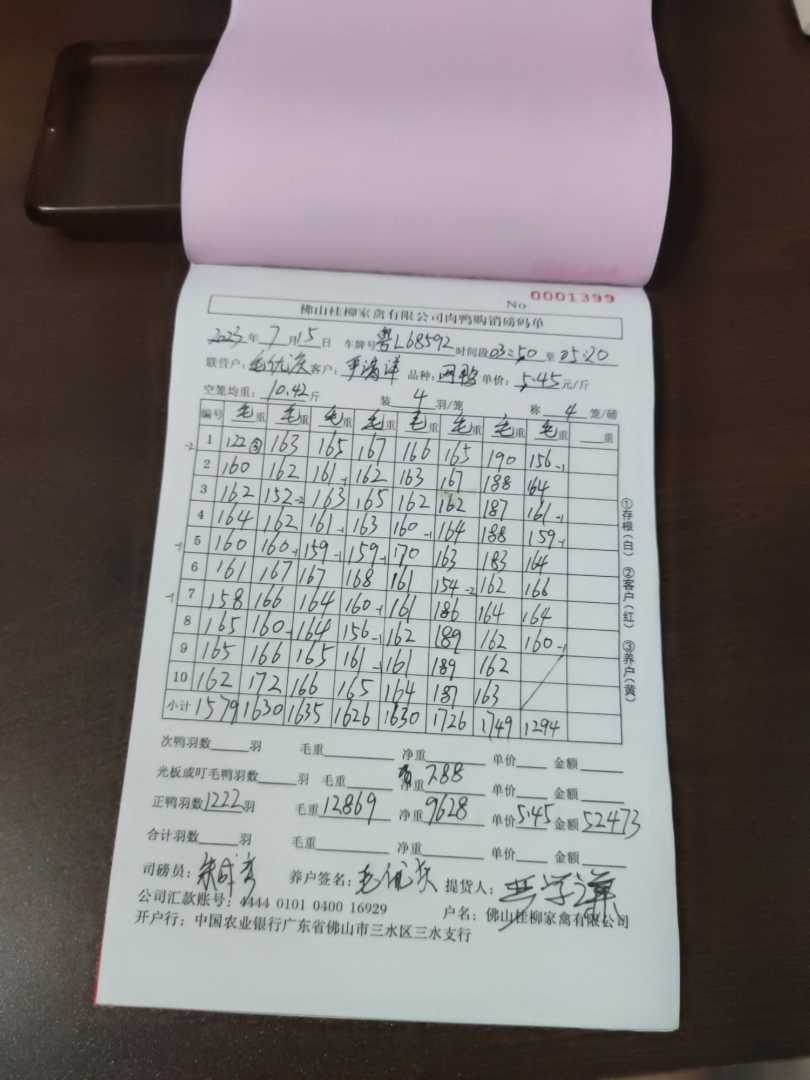 No 0001399
佛山桂柳家禽有限公司肉鸭购销磅码单
2023年 7月15日 车牌号 粤L68592 时间段 03:50 至 05:20
联营户: 客户: 品种: 单价: 5.45 元/斤
空笼均重: 10.42 斤 装 4 羽/笼 称 4 笼/磅
编号 毛重 毛重 毛重 毛重 毛重 毛重 毛重 毛重 重
-2 1 122③ 163 165 167 166 165 190 156-1
2 160 162 161-1 162 163 167 188 164
3 162 152-2 163 165 162 162 187 161-1
4 164 162 161-1 163 160-1 164 188 159-1
-1 5 160 160-1 159-1 159-1 170 163 183 164
6 161 167 167 168 161 154-2 162 166
-1 7 158 166 164 160-1 161 186 164 164
8 165 160-1 164 156-1 162 189 162 160-1
9 165 166 165 161-1 161 189 162
10 162 172 166 165 164 187 163
小计 1579 1630 1635 1626 1630 1726 1749 1294
①存根(白) ②客户(红) ③养户(黄)
次鸭羽数 羽 毛重 净重 单价 金额
光板或叮毛鸭羽数 羽 毛重 净重 288 单价 金额
正鸭羽数 1222 羽 毛重 12869 净重 9628 单价 5.45 金额 52473
合计羽数 羽 毛重 净重 单价 金额
司磅员: 养户签名: 提货人:
公司汇款账号: 4444 0101 0400 16929 户名: 佛山桂柳家禽有限公司
开户行: 中国农业银行广东省佛山市三水区三水支行